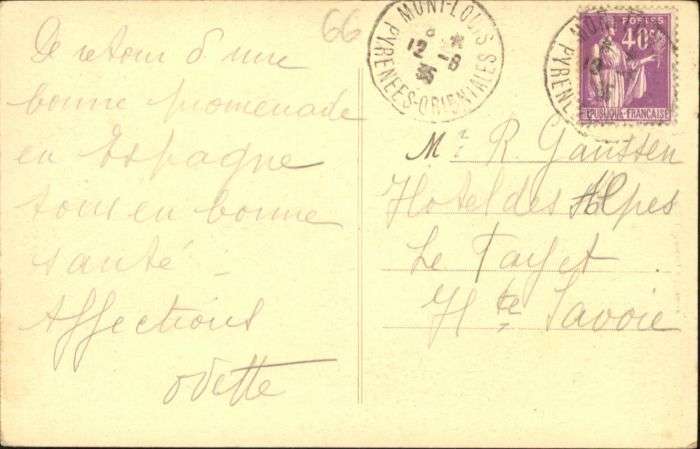 66
MONT-LOUIS
8 *
12 -8
35
PYRENEES-ORIENTALES
POSTES
40c
REPUBLIQUE FRANCAISE
De retour d'une
bonne promenade
en Espagne
tous en bonne
santé -
Affections
Odette
Mr R. Gaussen
Hotel des Alpes
Le Fayet
Hte Savoie